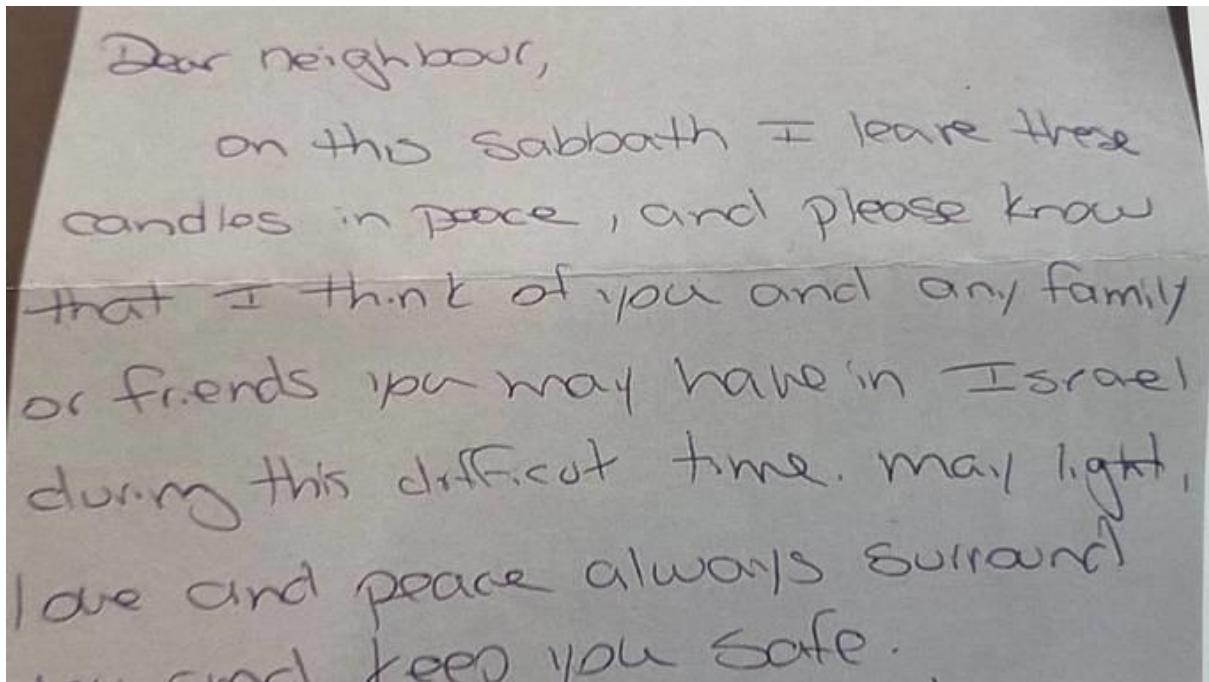 Dear neighbour,
on this sabbath I leave these
candles in peace, and please know
that I think of you and any family
or friends you may have in Israel
during this difficut time. may light,
love and peace always surround
you and keep you safe.